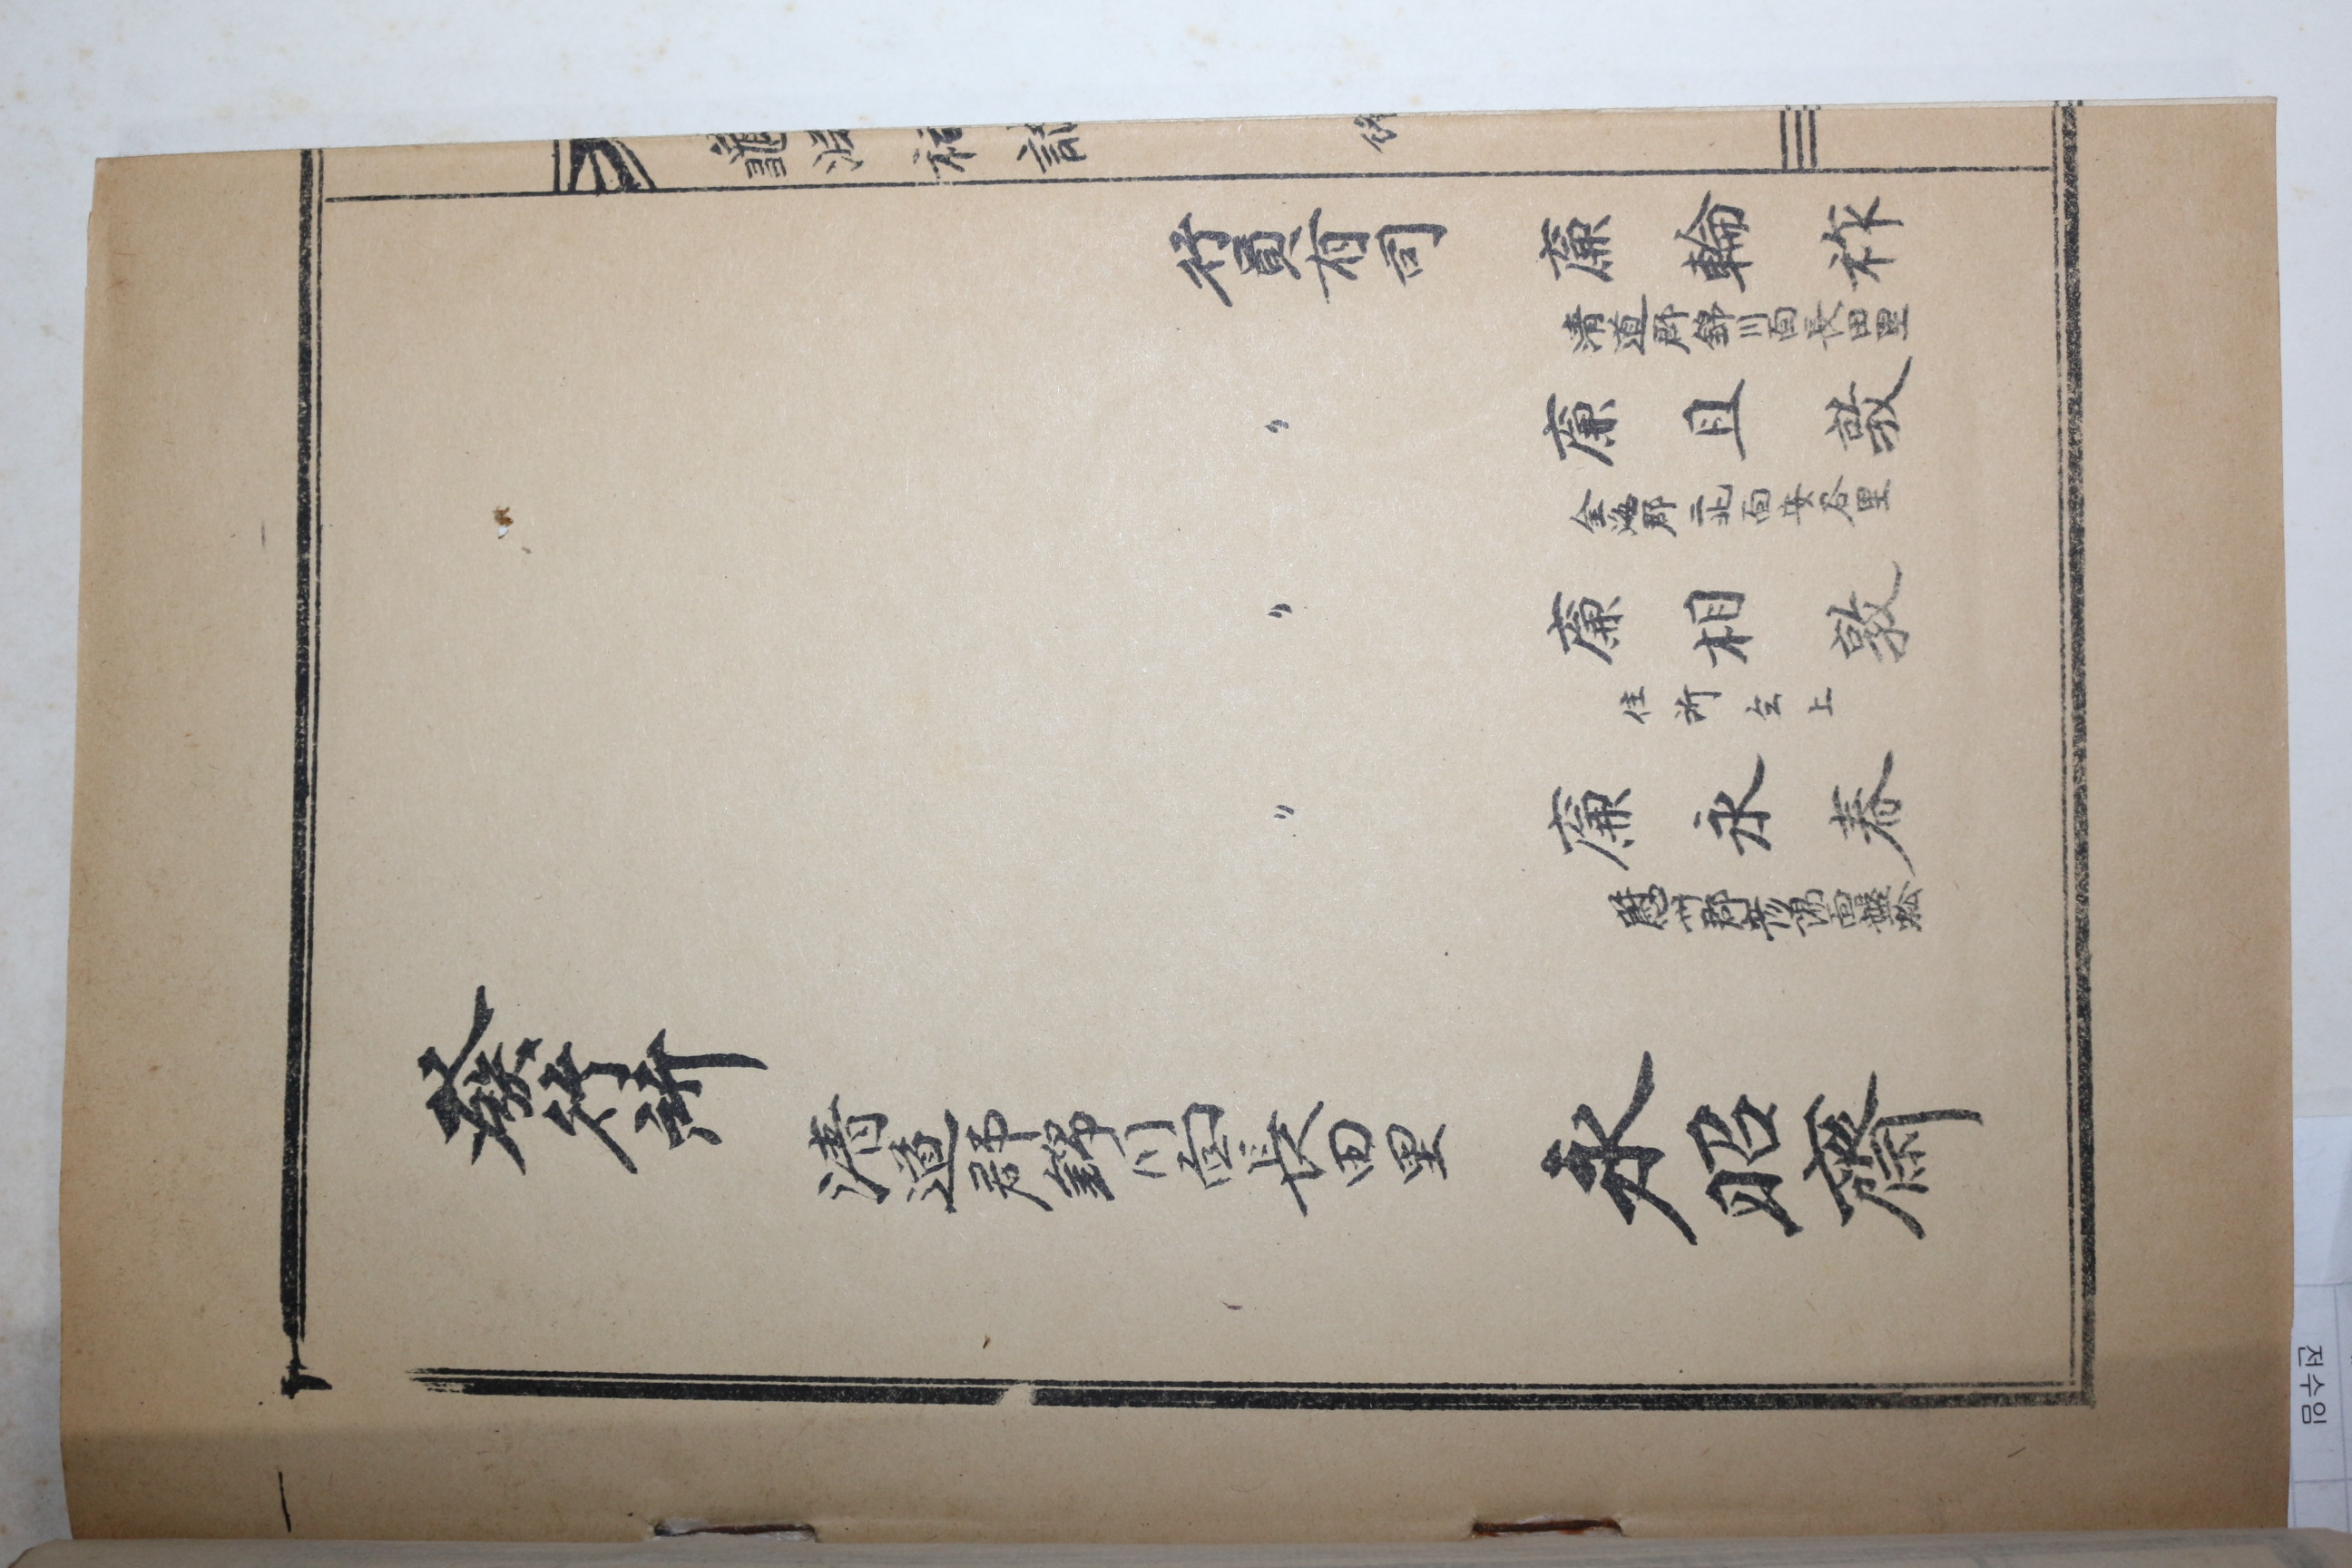 行員有司 廉輪祚
清道郡錦川面長田里
〃 廉且敦
金海郡二北面安谷里
〃 廉相敦
住所仝上
〃 廉永春
蔚州郡彦陽面盤松
發行所 清道郡錦川面長田里 永昭齋
전수임